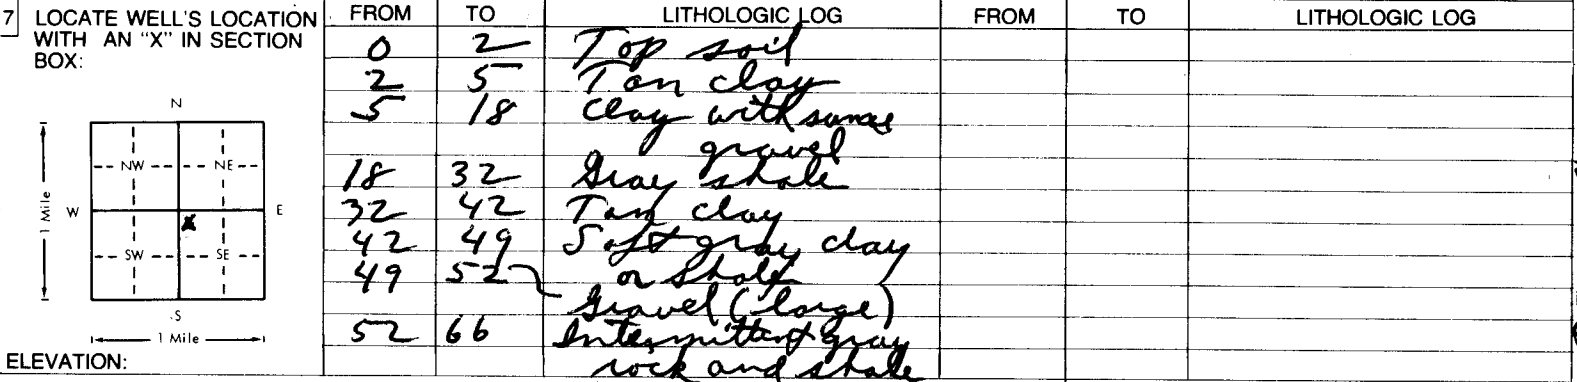 7 LOCATE WELL'S LOCATION WITH AN "X" IN SECTION BOX:
N
NW NE
W X E
SW SE
S
1 Mile
1 Mile
ELEVATION:
FROM TO LITHOLOGIC LOG FROM TO LITHOLOGIC LOG
0 2 Top soil
2 5 Tan clay
5 18 Clay with some
gravel
18 32 Gray shale
32 42 Tan clay
42 49 Soft gray clay
or shale
49 52 Gravel (large)
52 66 Intermittant gray
rock and shale